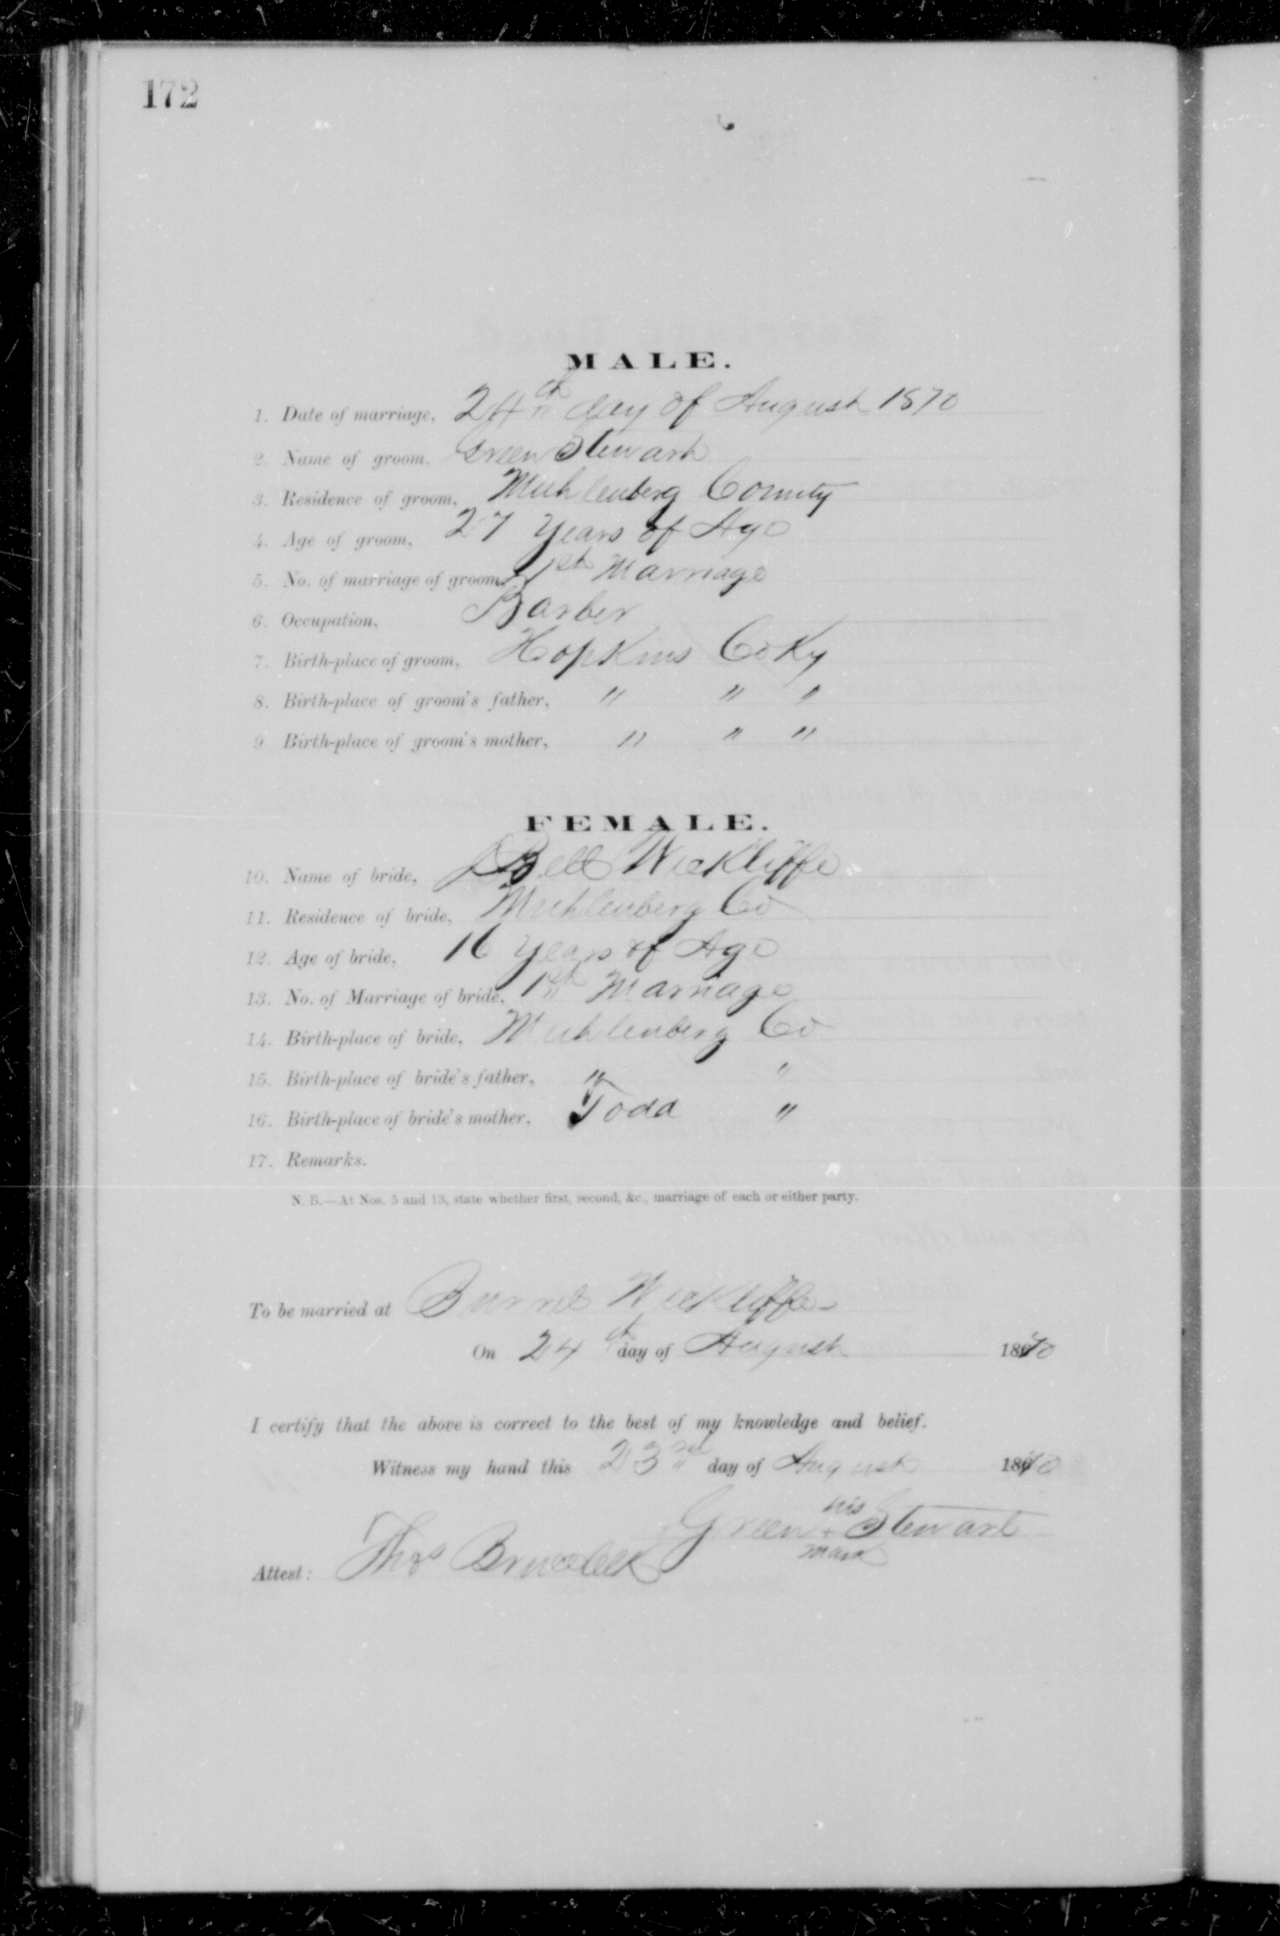 172
MALE.
1. Date of marriage, 24th day of August 1870
2. Name of groom, Green Stewart
3. Residence of groom, Muhlenberg County
4. Age of groom, 27 Years of Age
5. No. of marriage of groom, 1st Marriage
6. Occupation, Barber
7. Birth-place of groom, Hopkins Co Ky
8. Birth-place of groom's father, " " "
9. Birth-place of groom's mother, " " "
FEMALE.
10. Name of bride, Bell Wickliffe
11. Residence of bride, Muhlenberg Co
12. Age of bride, 16 Years of Age
13. No. of Marriage of bride, 1st Marriage
14. Birth-place of bride, Muhlenberg Co
15. Birth-place of bride's father, " "
16. Birth-place of bride's mother, Todd "
17. Remarks.
N. B.—At Nos. 5 and 13, state whether first, second, &c., marriage of each or either party.
To be married at Burrel Wickliffes
On 24th day of August 1870
I certify that the above is correct to the best of my knowledge and belief.
Witness my hand this 23rd day of August 1870
his
Green + Stewart
mark
Attest: Thos